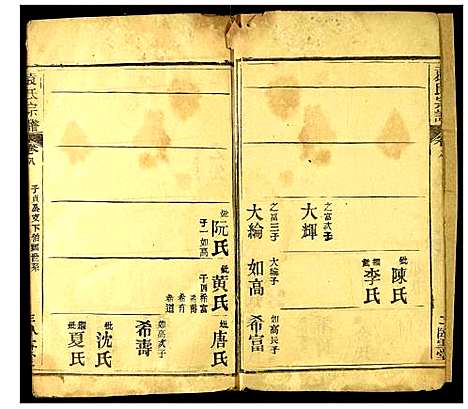 氏宗譜
妣陳氏
繼李氏
之富次子
大輝
之富三子
大綸
大綸子
如高
如高長子
希富
妣阮氏
子一如高
妣黄氏
子四希富
希壽
希有
希道
妣唐氏
如高次子
希壽
妣沈氏
繼夏氏
袁氏宗譜
卷八